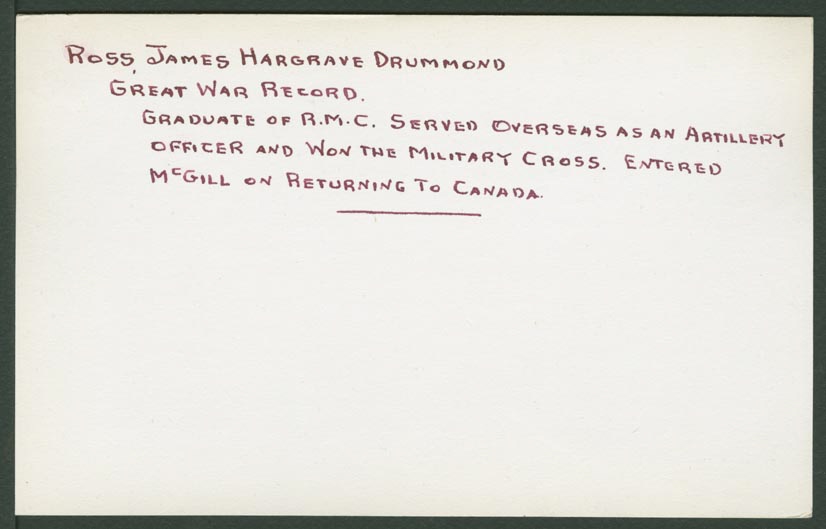 Ross, James Hargrave Drummond
Great War Record.
Graduate of R.M.C. Served Overseas as an Artillery
Officer and Won the Military Cross. Entered
McGill on Returning To Canada.